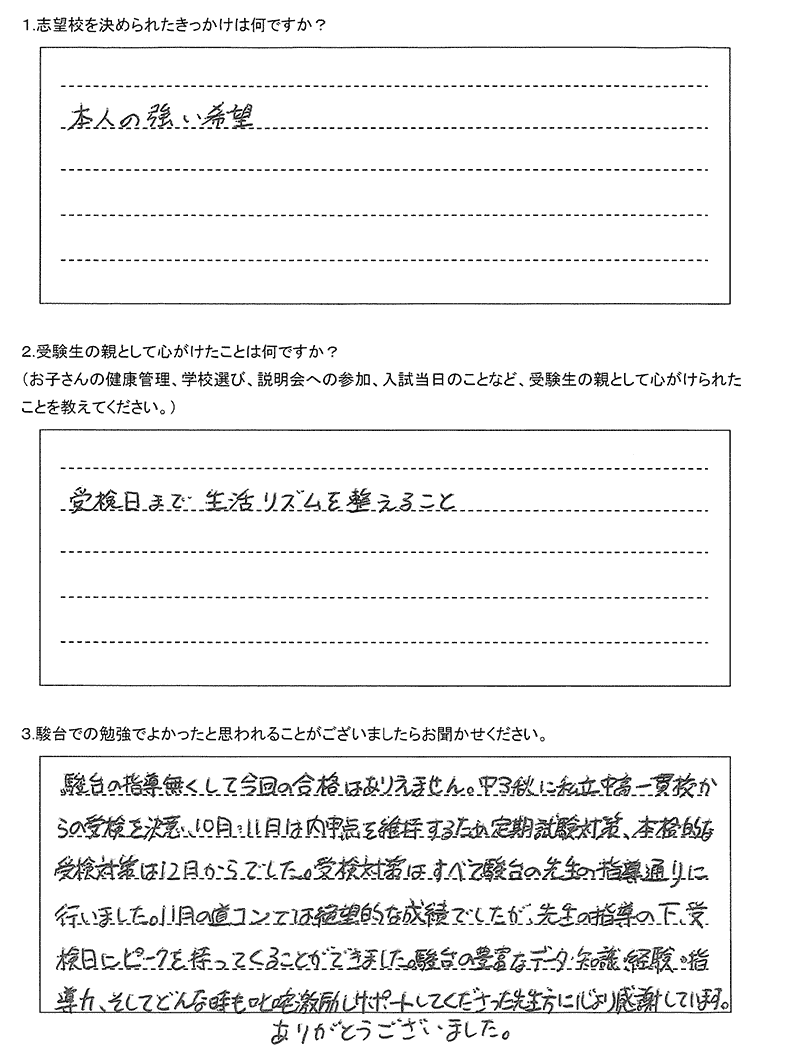 1.志望校を決められたきっかけは何ですか？
本人の強い希望
2.受験生の親として心がけたことは何ですか？
（お子さんの健康管理、学校選び、説明会への参加、入試当日のことなど、受験生の親として心がけられた
ことを教えてください。）
受検日まで生活リズムを整えること
3.駿台での勉強でよかったと思われることがございましたらお聞かせください。
駿台の指導無くして今回の合格はありえません。中3秋に私立中高一貫校か
らの受検を決意、10月・11月は内申点を維持するため定期試験対策、本格的な
受検対策は12月からでした。受検対策はすべて駿台の先生の指導通りに
行いました。11月の直コンでは絶望的な成績でしたが、先生の指導の下、受
検日にピークを持ってくることができました。駿台の豊富なデータ・知識・経験・指
導力、そしてどんな時も叱咤激励しサポートしてくださった先生方に心より感謝しています。
ありがとうございました。